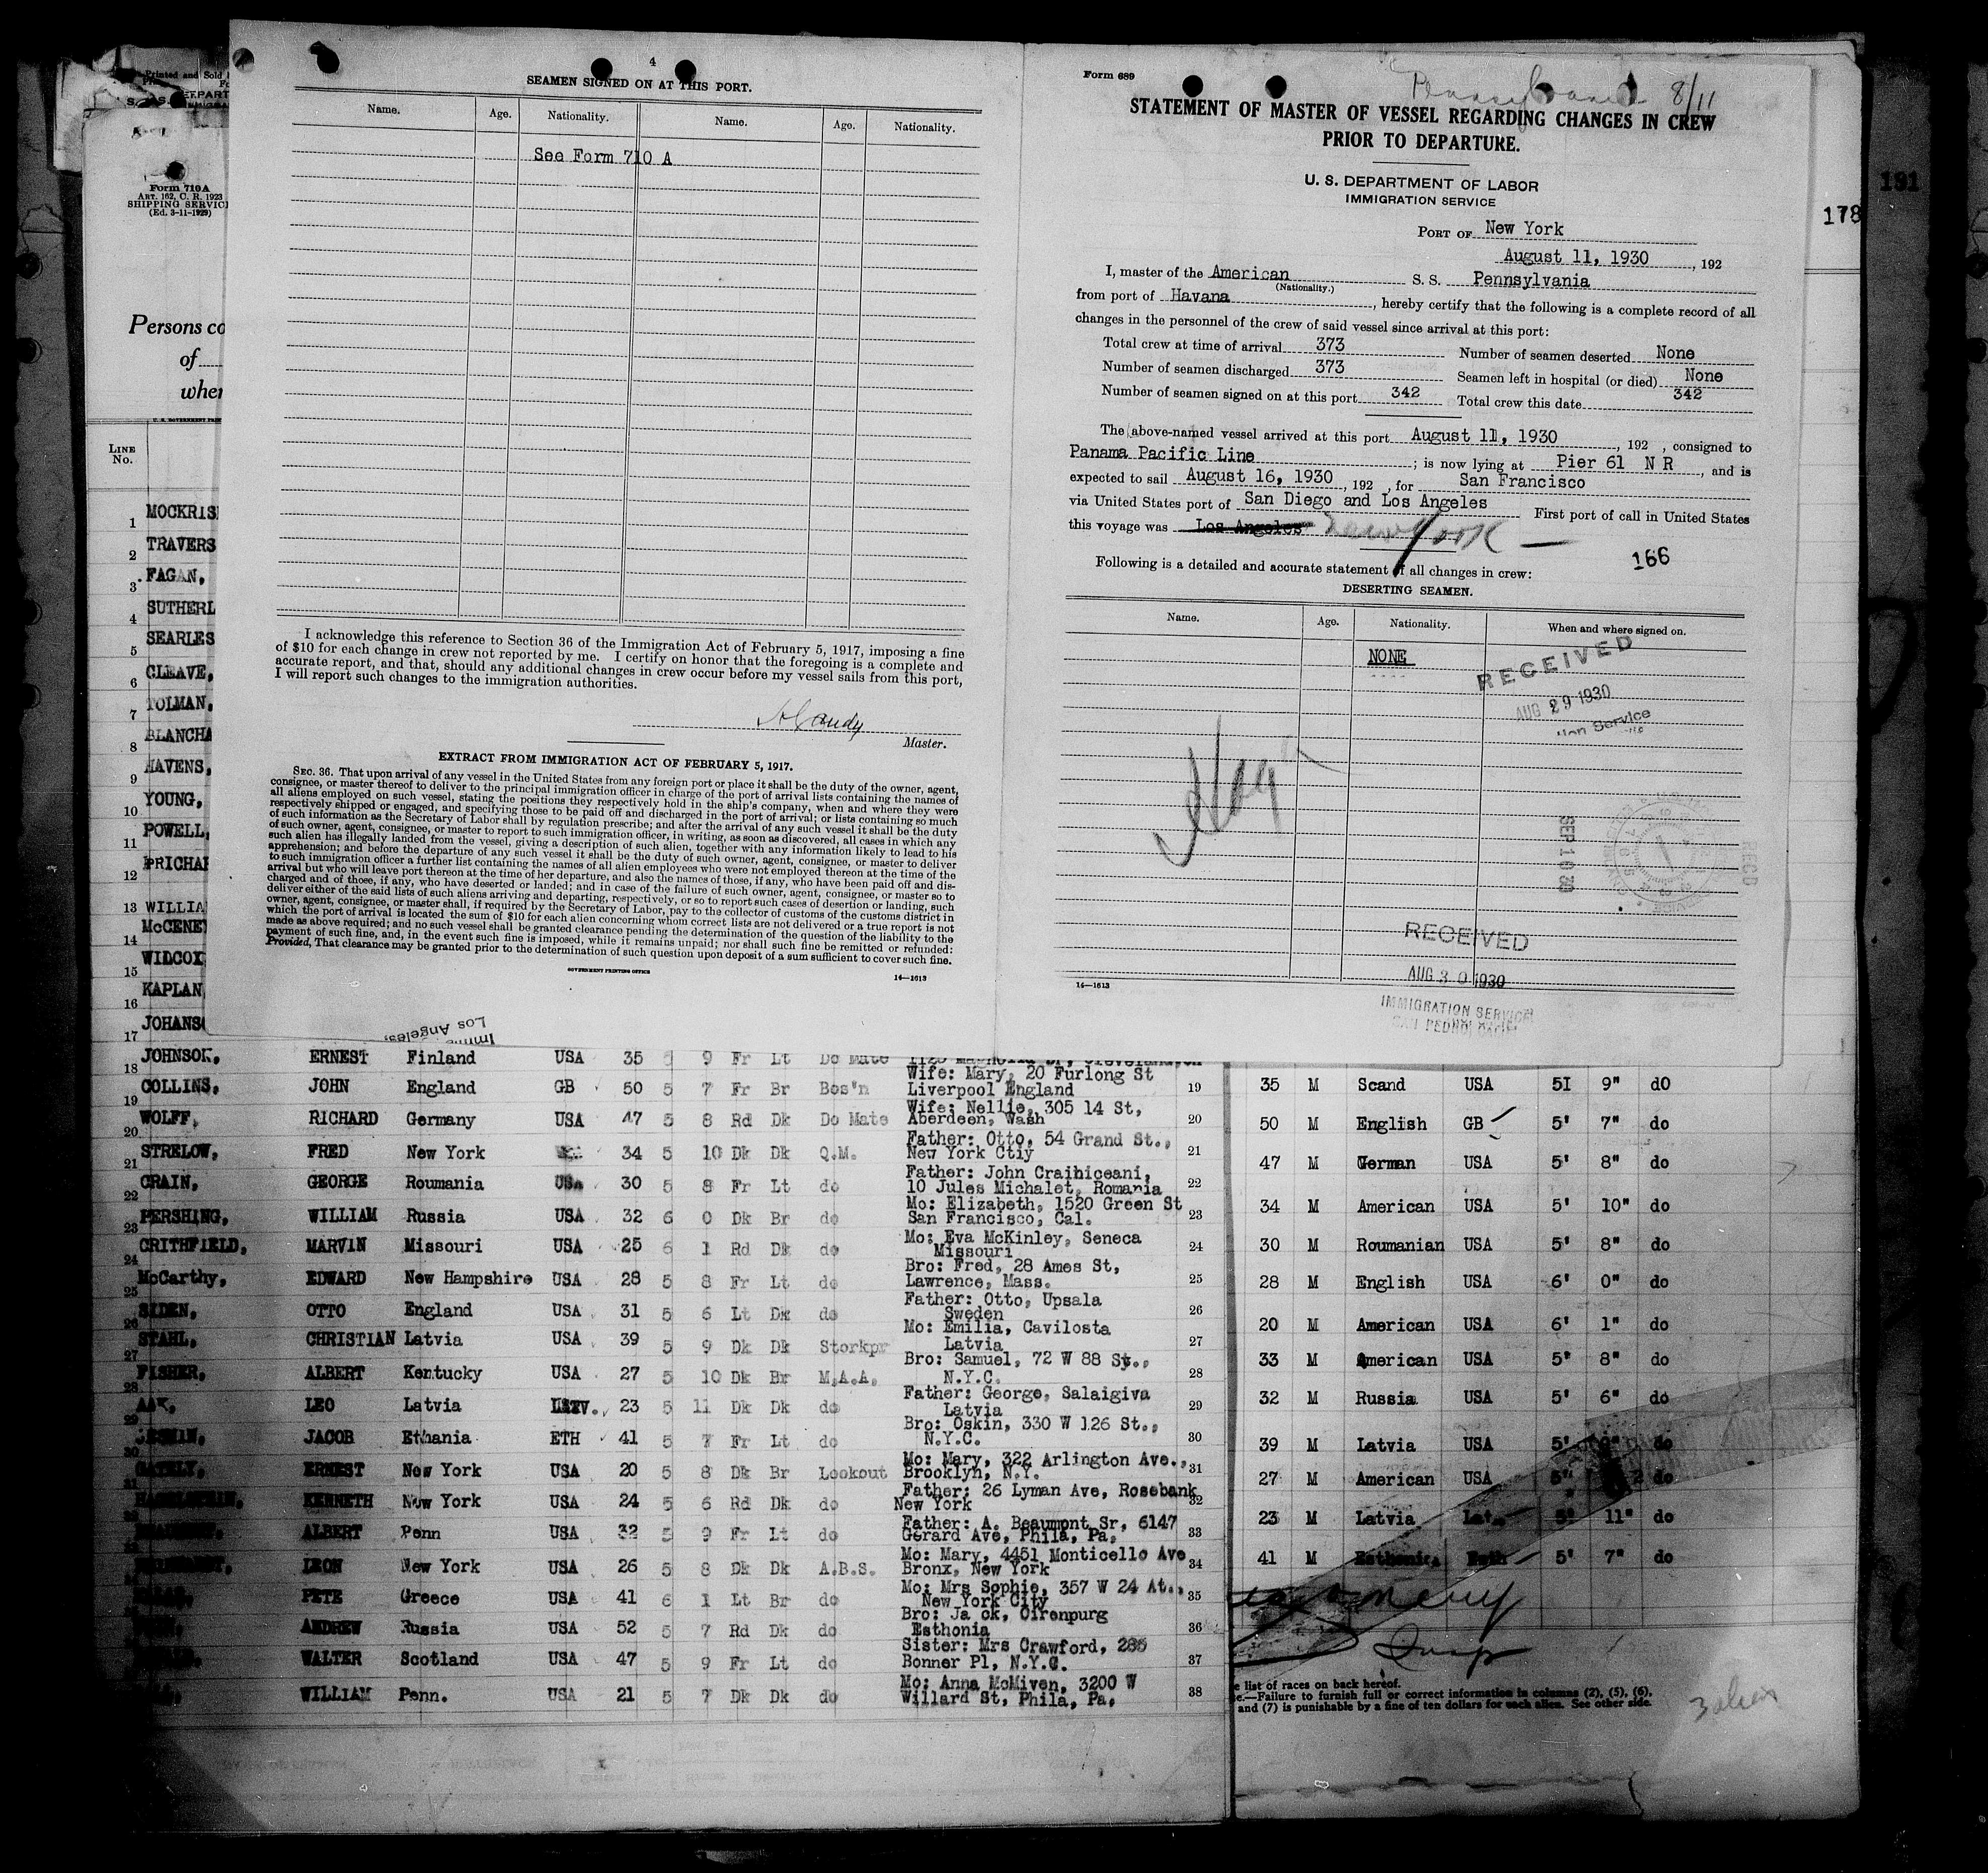 4
SEAMEN SIGNED ON AT THIS PORT.
Name. Age. Nationality. Name. Age. Nationality.
See Form 710 A
I acknowledge this reference to Section 36 of the Immigration Act of February 5, 1917, imposing a fine
of $10 for each change in crew not reported by me. I certify on honor that the foregoing is a complete and
accurate report, and that, should any additional changes in crew occur before my vessel sails from this port,
I will report such changes to the immigration authorities.
Master.
EXTRACT FROM IMMIGRATION ACT OF FEBRUARY 5, 1917.
SEC. 36. That upon arrival of any vessel in the United States from any foreign port or place it shall be the duty of the owner, agent,
consignee, or master thereof to deliver to the principal immigration officer in charge of the port of arrival lists containing the names of
all aliens employed on such vessel, stating the positions they respectively hold in the ship's company, when and where they were
respectively shipped or engaged, and specifying those to be paid off and discharged in the port of arrival; or lists containing so much
of such information as the Secretary of Labor shall by regulation prescribe; and after the arrival of any such vessel it shall be the duty
of such owner, agent, consignee, or master to report to such immigration officer, in writing, as soon as discovered, all cases in which any
such alien has illegally landed from the vessel, giving a description of such alien, together with any information likely to lead to his
apprehension; and before the departure of any such vessel it shall be the duty of such owner, agent, consignee, or master to deliver
to such immigration officer a further list containing the names of all alien employees who were not employed thereon at the time of the
arrival but who will leave port thereon at the time of her departure, and also the names of those, if any, who have been paid off and dis-
charged and of those, if any, who have deserted or landed; and in case of the failure of such owner, agent, consignee, or master so to
deliver either of the said lists of such aliens arriving and departing, respectively, or so to report such cases of desertion or landing, such
owner, agent, consignee, or master shall, if required by the Secretary of Labor, pay to the collector of customs of the customs district in
which the port of arrival is located the sum of $10 for each alien concerning whom correct lists are not delivered or a true report is not
made as above required; and no such vessel shall be granted clearance pending the determination of the question of the liability to the
payment of such fine, and, in the event such fine is imposed, while it remains unpaid; nor shall such fine be remitted or refunded:
Provided, That clearance may be granted prior to the determination of such question upon deposit of a sum sufficient to cover such fine.
GOVERNMENT PRINTING OFFICE 14—1613
Los Angeles
Form 689
Pennsylvania 8/11
STATEMENT OF MASTER OF VESSEL REGARDING CHANGES IN CREW
PRIOR TO DEPARTURE.
U. S. DEPARTMENT OF LABOR
IMMIGRATION SERVICE
PORT OF New York
August 11, 1930, 192
I, master of the American S. S. Pennsylvania
(Nationality.)
from port of Havana, hereby certify that the following is a complete record of all
changes in the personnel of the crew of said vessel since arrival at this port:
Total crew at time of arrival 373 Number of seamen deserted None
Number of seamen discharged 373 Seamen left in hospital (or died) None
Number of seamen signed on at this port 342 Total crew this date 342
The above-named vessel arrived at this port August 11, 1930, 192 , consigned to
Panama Pacific Line; is now lying at Pier 61 N R, and is
expected to sail August 16, 1930, 192 , for San Francisco
via United States port of San Diego and Los Angeles First port of call in United States
this voyage was Los Angeles New York —
166
Following is a detailed and accurate statement of all changes in crew:
DESERTING SEAMEN.
Name. Age. Nationality. When and where signed on.
NONE
RECEIVED
AUG 29 1930
Service
SEP 10 30
REC'D
RECEIVED
AUG 30 1930
IMMIGRATION SERVICE
SAN PEDRO,
14—1613
191
178
Printed and Sold
Form 710A
ART. 162, C. R. 1923
SHIPPING SERVIC
(Ed. 3-11-1929)
Persons co
of
wher
LINE
No.
1 MOCKRIS
2 TRAVERS
3 FAGAN,
4 SUTHERL
5 SEARLES
6 CLEAVE,
7 TOLMAN,
8 BLANCHA
9 HAVENS,
10 YOUNG,
11 POWELL,
12 PRICHAR
13 WILLIA
14 McCENE
15 WILCOX
16 KAPLAN
17 JOHANS
18 JOHNSON, ERNEST Finland USA 35 5 9 Fr Lt Do Mate
19 COLLINS, JOHN England GB 50 5 7 Fr Br Bos'n Wife: Mary, 20 Furlong St Liverpool England 19
20 WOLFF, RICHARD Germany USA 47 5 8 Rd Dk Do Mate Wife: Nellie, 305 14 St, Aberdeen, Wash 20
21 STRELOW, FRED New York 34 5 10 Dk Dk Q.M. Father: Otto, 54 Grand St., New York Ctiy 21
22 CRAIN, GEORGE Roumania USA 30 5 8 Fr Lt do Father: John Craihiceani, 10 Jules Michalet, Romania 22
23 PERSHING, WILLIAM Russia USA 32 6 0 Dk Br do Mo: Elizabeth, 1520 Green St San Francisco, Cal. 23
24 CRITHFIELD, MARVIN Missouri USA 25 6 1 Rd Dk do Mo: Eva McKinley, Seneca Missouri 24
25 McCarthy, EDWARD New Hampshire USA 28 5 8 Fr Lt do Bro: Fred, 28 Ames St, Lawrence, Mass. 25
26 SIDEN, OTTO England USA 31 5 6 Lt Dk do Father: Otto, Upsala Sweden 26
27 STAHL, CHRISTIAN Latvia USA 39 5 9 Dk Dk Storkpr Mo: Emilia, Cavilosta Latvia 27
28 FISHER, ALBERT Kentucky USA 27 5 10 Dk Br M.A.A. Bro: Samuel, 72 W 88 St., N.Y.C. 28
29 LEO Latvia 23 5 11 Dk Dk do Father: George, Salaigiva Latvia 29
30 JACOB Ethania ETH 41 5 7 Fr Lt do Bro: Oskin, 330 W 126 St., N.Y.C. 30
31 GATELY, ERNEST New York USA 20 5 8 Dk Br Lookout Mo: Mary, 322 Arlington Ave., Brooklyn, N.Y. 31
KENNETH New York USA 24 5 6 Rd Dk do Father: 26 Lyman Ave, Rosebank New York 32
ALBERT Penn USA 32 5 9 Fr Lt do Father: A. Beaumont Sr, 6147 Gerard Ave, Phila, Pa, 33
LEON New York USA 26 5 8 Dk Dk A.B.S. Mo: Mary, 4451 Monticello Ave Bronx, New York 34
PETE Greece USA 41 6 1 Lt Br do Mo: Mrs Sophie, 357 W 24 At., New York City 35
ANDREW Russia USA 52 5 7 Rd Dk do Bro: Ja ck, Oirenpurg Esthonia 36
WALTER Scotland USA 47 5 9 Fr Lt do Sister: Mrs Crawford, 285 Bonner Pl, N.Y.C. 37
WILLIAM Penn. USA 21 5 7 Dk Dk do Mo: Anna McMiven, 3200 W Willard St, Phila, Pa, 38
35 M Scand USA 5I 9" dO
50 M English GB 5' 7" do
47 M German USA 5' 8" do
34 M American USA 5' 10" do
30 M Roumanian USA 5' 8" do
28 M English USA 6' 0" do
20 M American USA 6' 1" do
33 M American USA 5" 8" do
32 M Russia USA 5' 6" do
39 M Latvia USA 5' 9" do
27 M American USA 5' do
23 M Latvia Lat. 5" 11" do
41 M Esthonia Esth 5' 7" do
e list of races on back hereof.
e.—Failure to furnish full or correct information in columns (2), (5), (6),
and (7) is punishable by a fine of ten dollars for each alien. See other side.
3 aliens